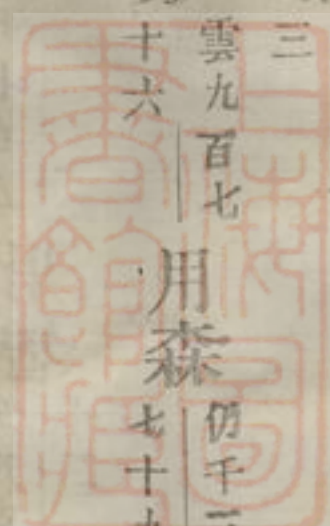 三
雲九百七
十六
用森
仍千一
七十